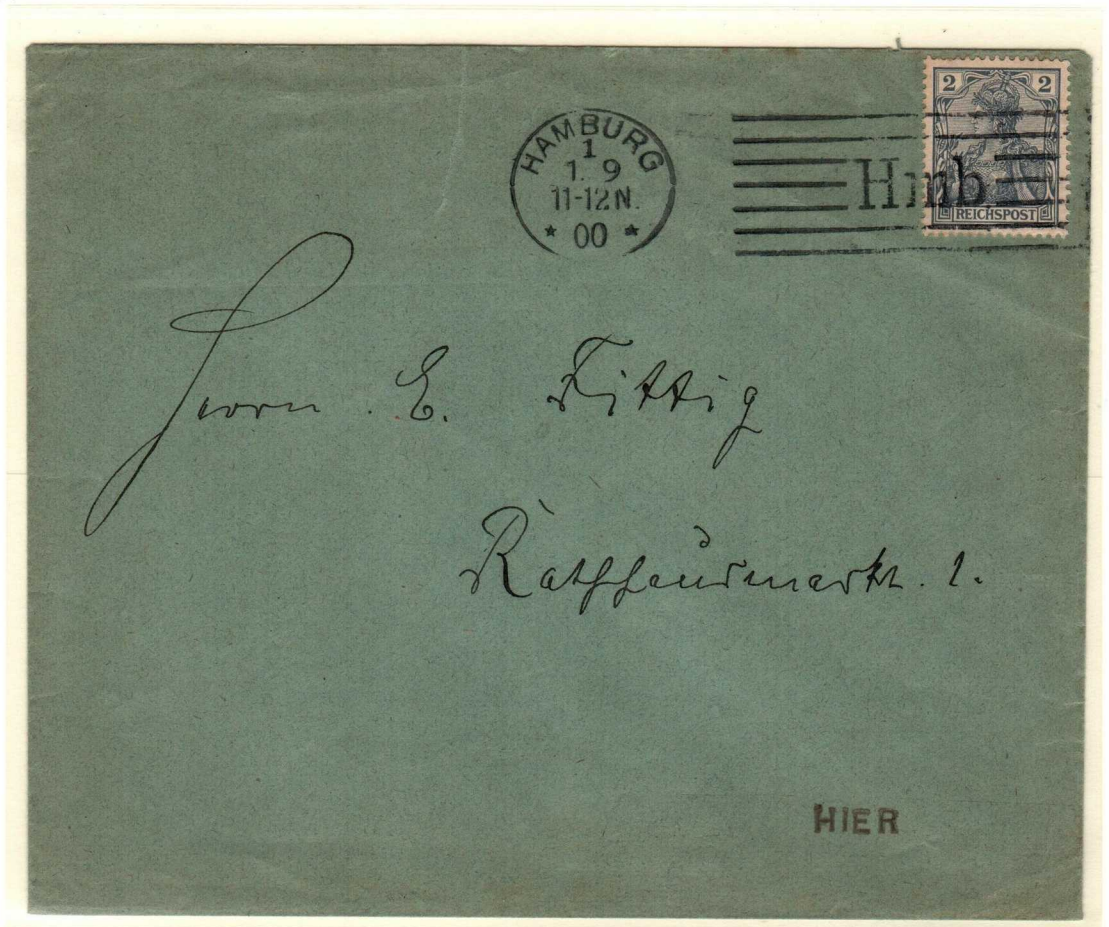 HAMBURG
1
1. 9
11-12 N.
* 00 *
Hmb.
2 2
REICHSPOST
Herrn E. Fittig
Rathhausmarkt. 1.
HIER